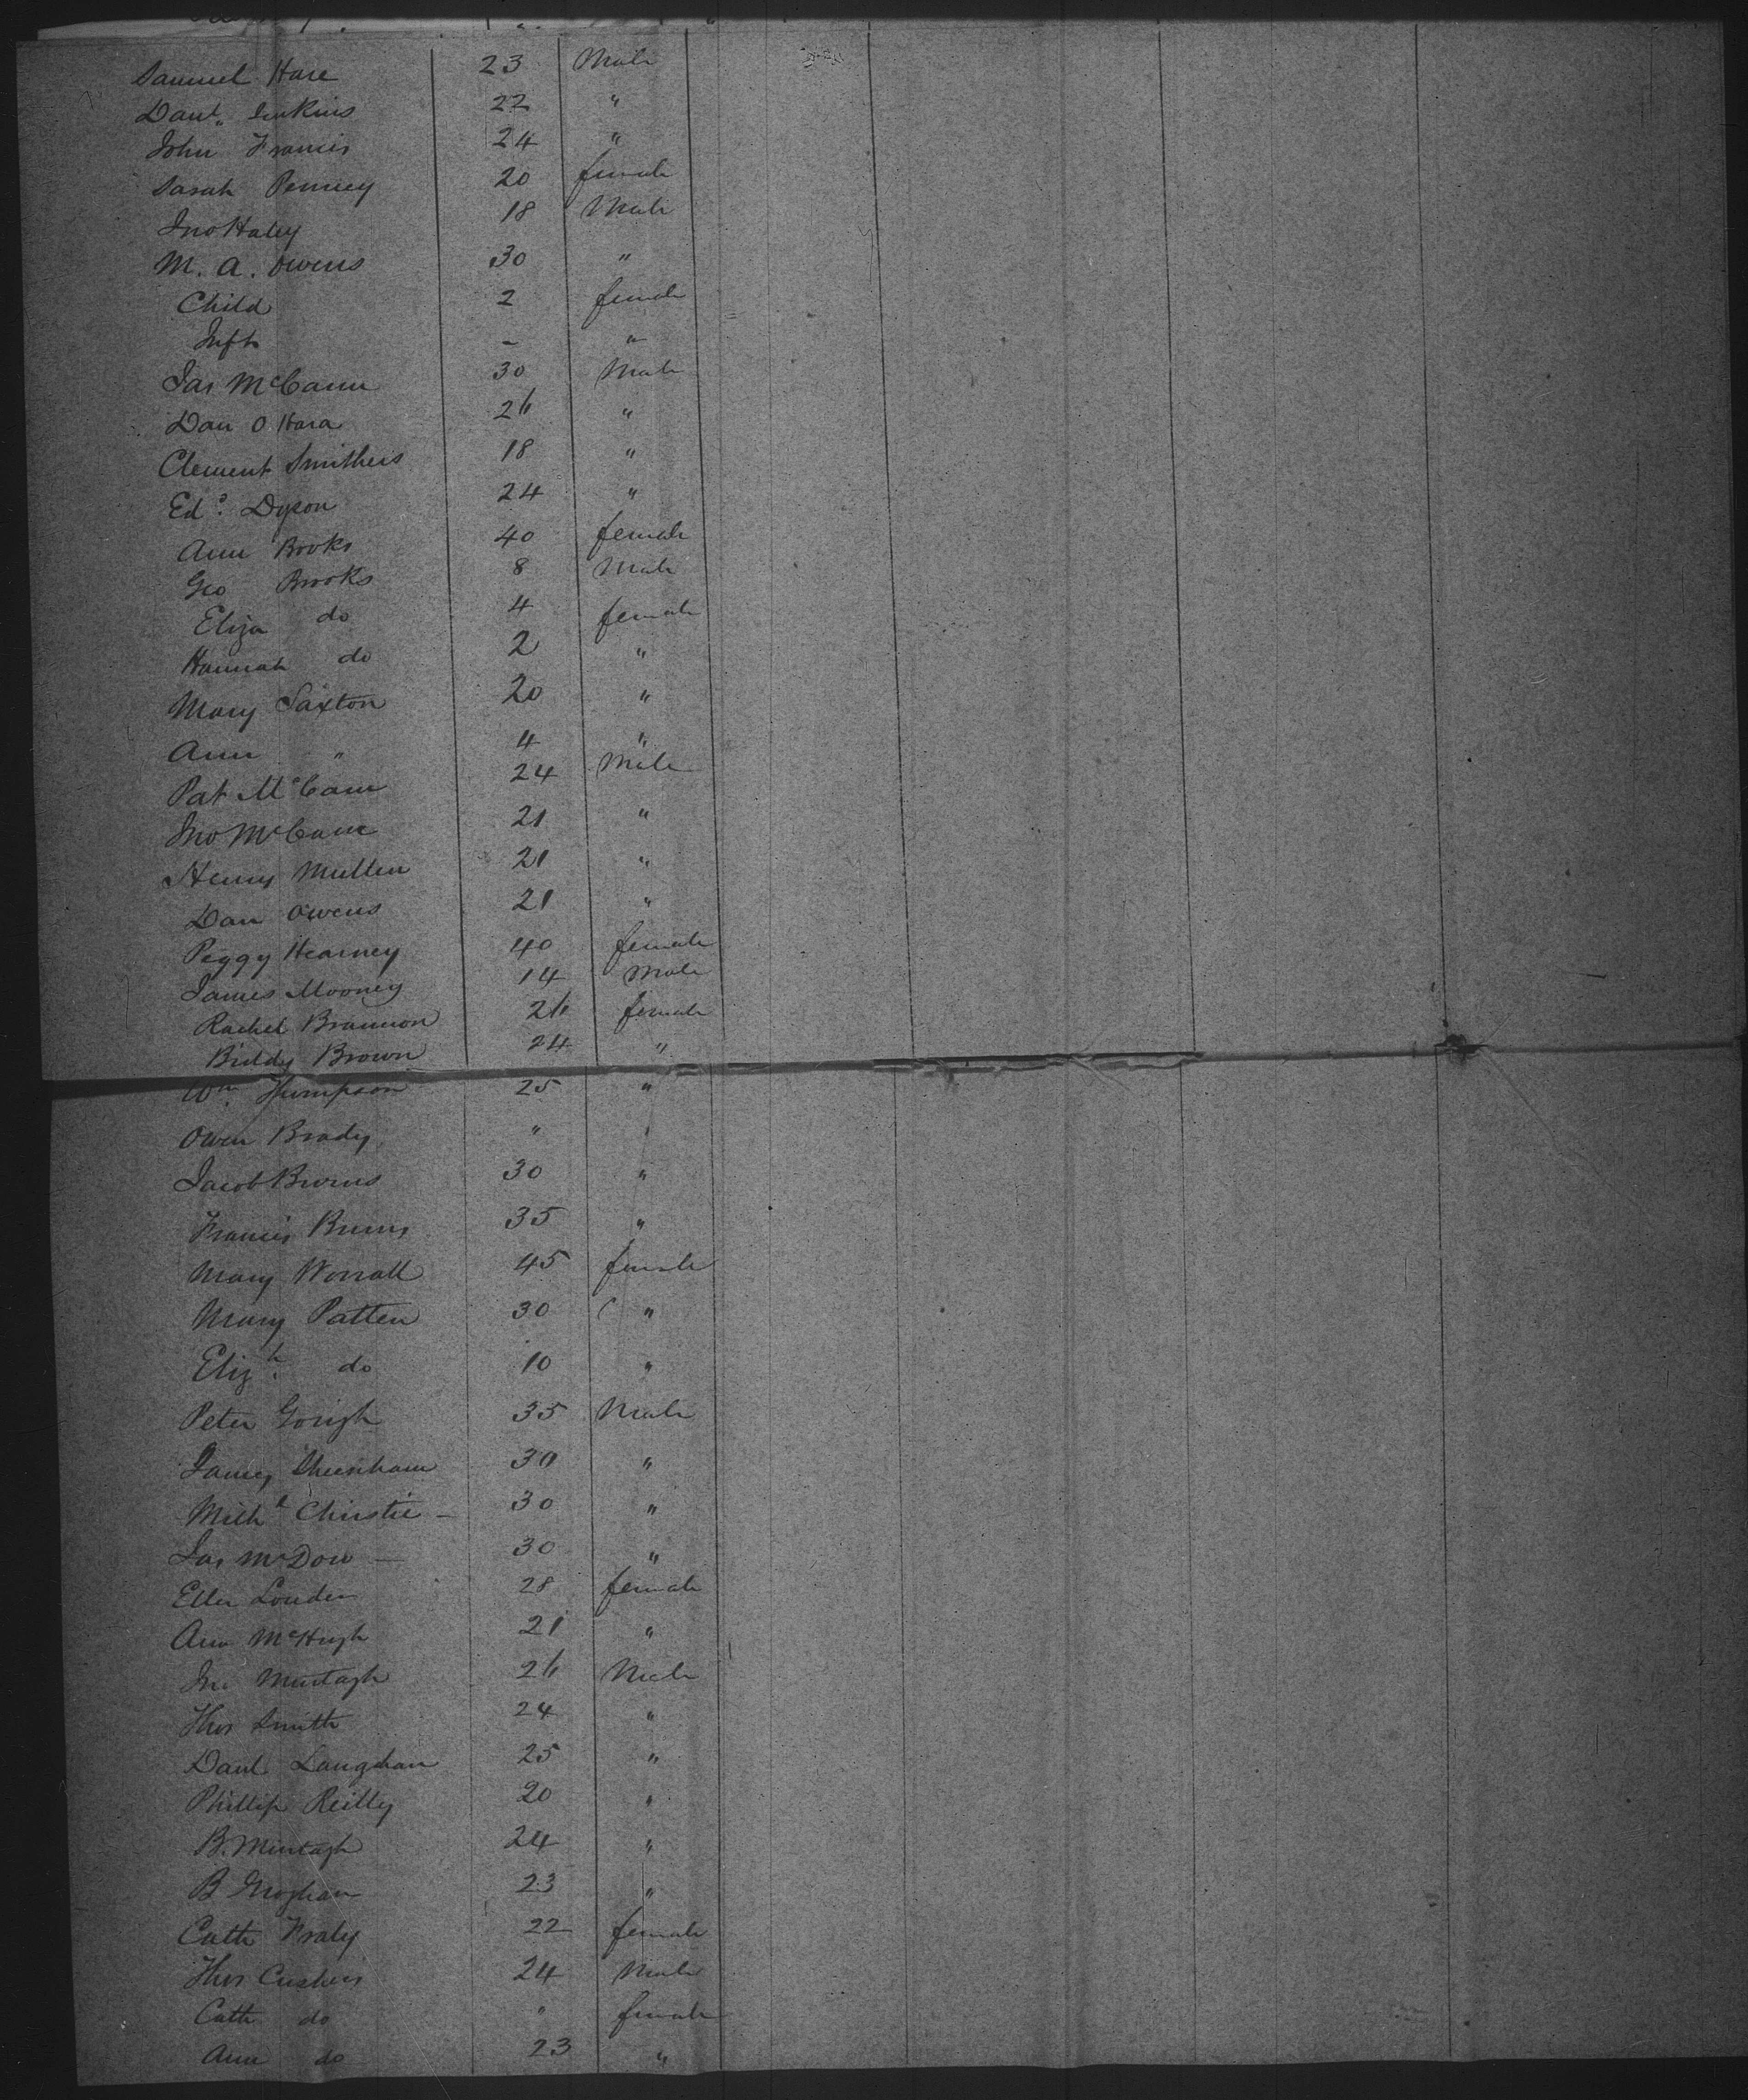 Samuel Hare 23 Male
Danl. Jenkins 22 "
John Francis 24 "
Sarah Penney 20 female
Jno Haley 18 Male
M. A. Owens 30 "
Child 2 female
Inft - "
Jas McCann 30 Male
Dan O Hara 26 "
Clement Smithers 18 "
Edd. Dyson 24 "
Ann Brooks 40 female
Geo Brooks 8 Male
Eliza do 4 female
Hannah do 2 "
Mary Saxton 20 "
Ann " 4 "
Pat McCann 24 Male
Jno McCann 21 "
Henry Mullen 21 "
Dan Owens 21 "
Peggy Hearney 40 female
James Mooney 14 Male
Rachel Brannon 26 female
Biddy Brown 24 "
Wm. Thompson 25 "
Owen Brady " "
Jacob Burns 30 "
Francis Burns 35 "
Mary Worrall 45 female
Mary Patten 30 "
Elizh. do 10 "
Peter 35 Male
James 30 "
Michl Christie - 30 "
Jas McDow - 30 "
Ellen Louden 28 female
Ann McHugh 21 "
Jno Murtagh 26 Male
Thos Smith 24 "
Danl Langdan 25 "
Phillip Reilly 20 "
B. Murtagh 24 "
B 23 "
Cath 22 female
Thos Cushen 24 Male
Cath do " female
Ann do 23 "